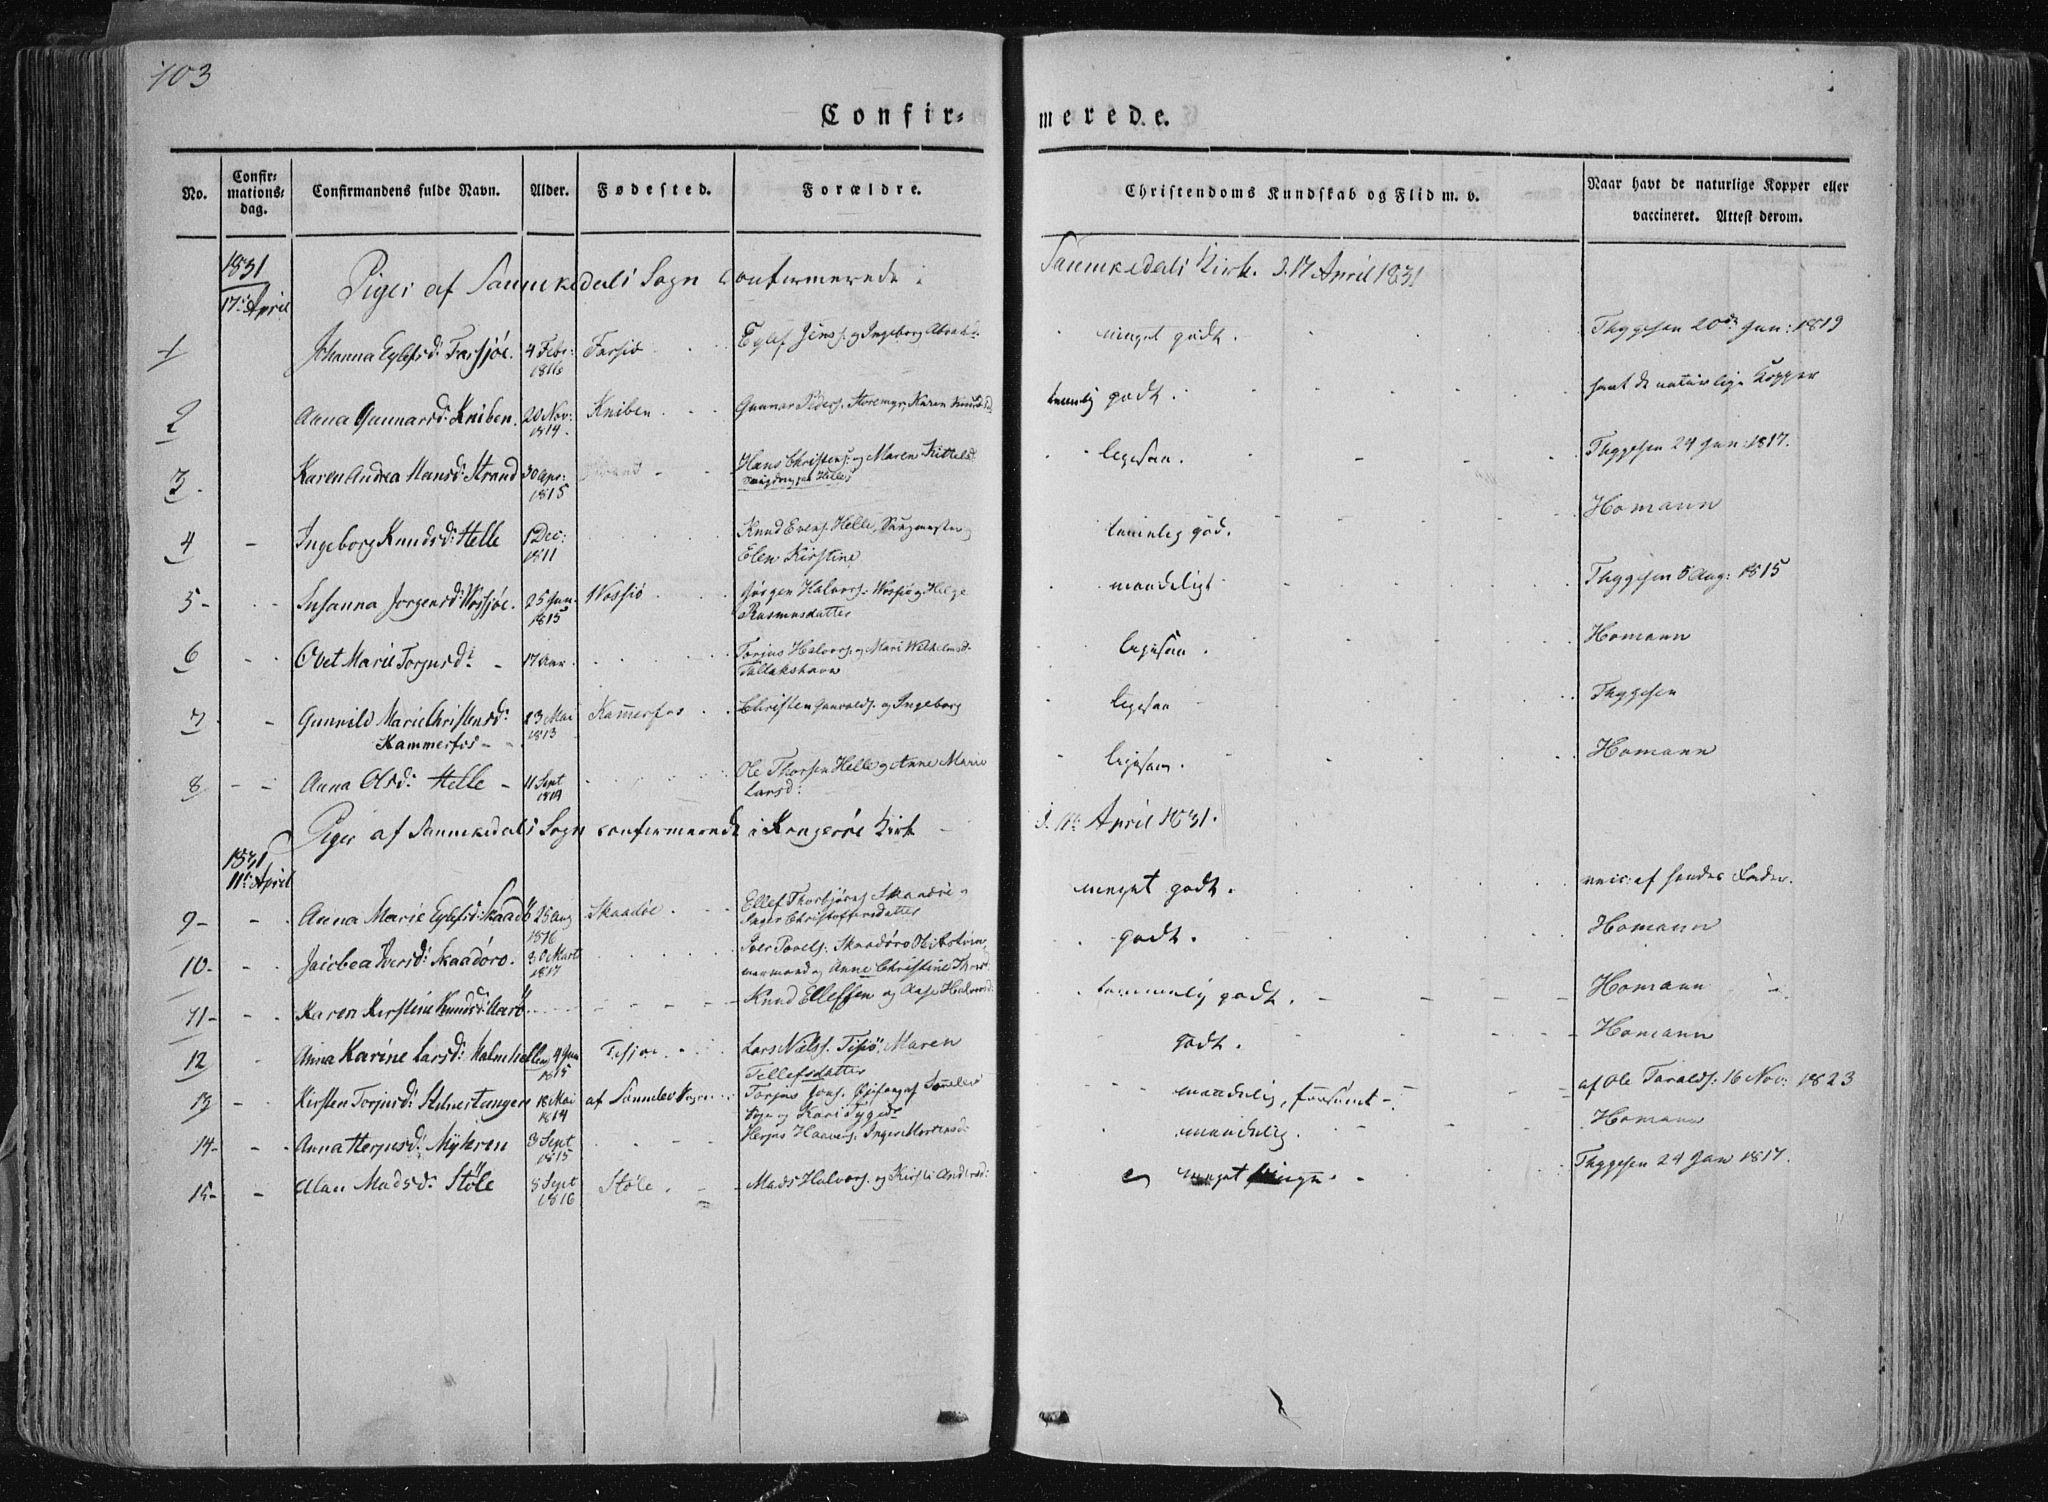 103
Confir- merede.
No. Confir-mations-dag. Confirmandens fulde Navn. Alder. Fødested. Forældre. Christendoms Kundskab og Flid m. v. Naar havt de naturlige Kopper eller vaccineret. Attest derom.
1831 17de April Piger af Sannikedals Sogn confirmerede i Sannikedals Kirke d. 17 April 1831
1 Johanna Eylefsd: Farsjøe. 4 Febr: Farsiø Eylef Jens: og Ingeborg Abrah: meget godt. Thygesen 20de Jun: 1819
2 Anna Gunnarsd: Kniben. 20 Nov: 1814. Kniben Gunnar Peders: Storemyr, Karen godt. havt de naturlige Kopper
3. Karen Andrea Hansd: Strand 30 Apr: 1815 Hans Christens: og Maren Kittelsd: ligesaa. Thygesen 24 Jun: 1817.
4 - Ingeborg Knudsd: Helle 1 Dec: 1811 Knud Evens: Helle, Elen Kirstine temmelig god. Homann
5 - Susanna Jørgensd: Wosjøe. 25 Jun. 1815 Wossiø Jørgen Halvors: Wosjø og Helge Rasmusdatter maadeligt Thygesen 5 Aug: 1815
6 Ovet Marie Torjusd: - 17 Aar Torjus Halvors: og Mari Wilhelmsd: Tallakshavn ligesaa. Homann
7 - Gunnild Marie Christensd: Kammerfos - 23 Mai 1813 Kammerfos Christen Gunvalds: og Ingeborg ligesaa Thygesen
8 - Anna Olsd: Helle - 11 Sept Ole Thorsen Helle og Anne Marie Larsd: ligesaa. Homann
Piger af Sannikedals Sogn confirmerede i Kragerøe Kirke d. 11te April 1831.
1831 11te April
9 - Anna Marie Eylefsd: Skaadø 25 Aug 1816 Skaadøe. Ellef Thorbjørns: Skaadøe og Inger Christoffersdatter meget godt. af hendes Fader.
10 - Jacobea Iversd: Skaadøro. 30 Marts 1817 Iver Povels: Skaadøro og Anne Christine godt. Homann
11 - Karen Kirstine Knudsd: Knud Elleffsen og Aase Halvorsd: temmelig godt. Homann
12 - Anna Karine Larsd: 4 Jun 1815 Lars Niels: Maren Tellefsdatter godt. Homann
13 - Kirsten Torjusd: 18 Mai 1814 af Torjus Jons: Sogn og Kari maadelig, forsømt - af Ole Taralds: 16 Nov: 1823
14 - Anna Herjusd: Myhren 3 Sept 1815 Herjus Haavers: Inger Mortensd: maadelig. Homann
15 - Alan Madsd: Støle 8 Sept 1816 Støle. Mads Halvors: og Kirsti Andersd: meget Thygesen 24 Jan 1817.